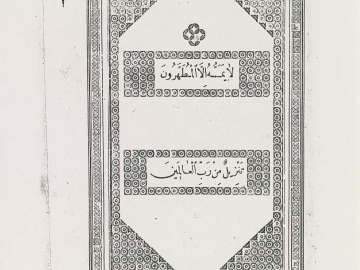 لَا يَمَسُّهُ إِلَّا الْمُطَهَّرُونَ
تَنْزِيلٌ مِنْ رَبِّ الْعَالَمِينَ